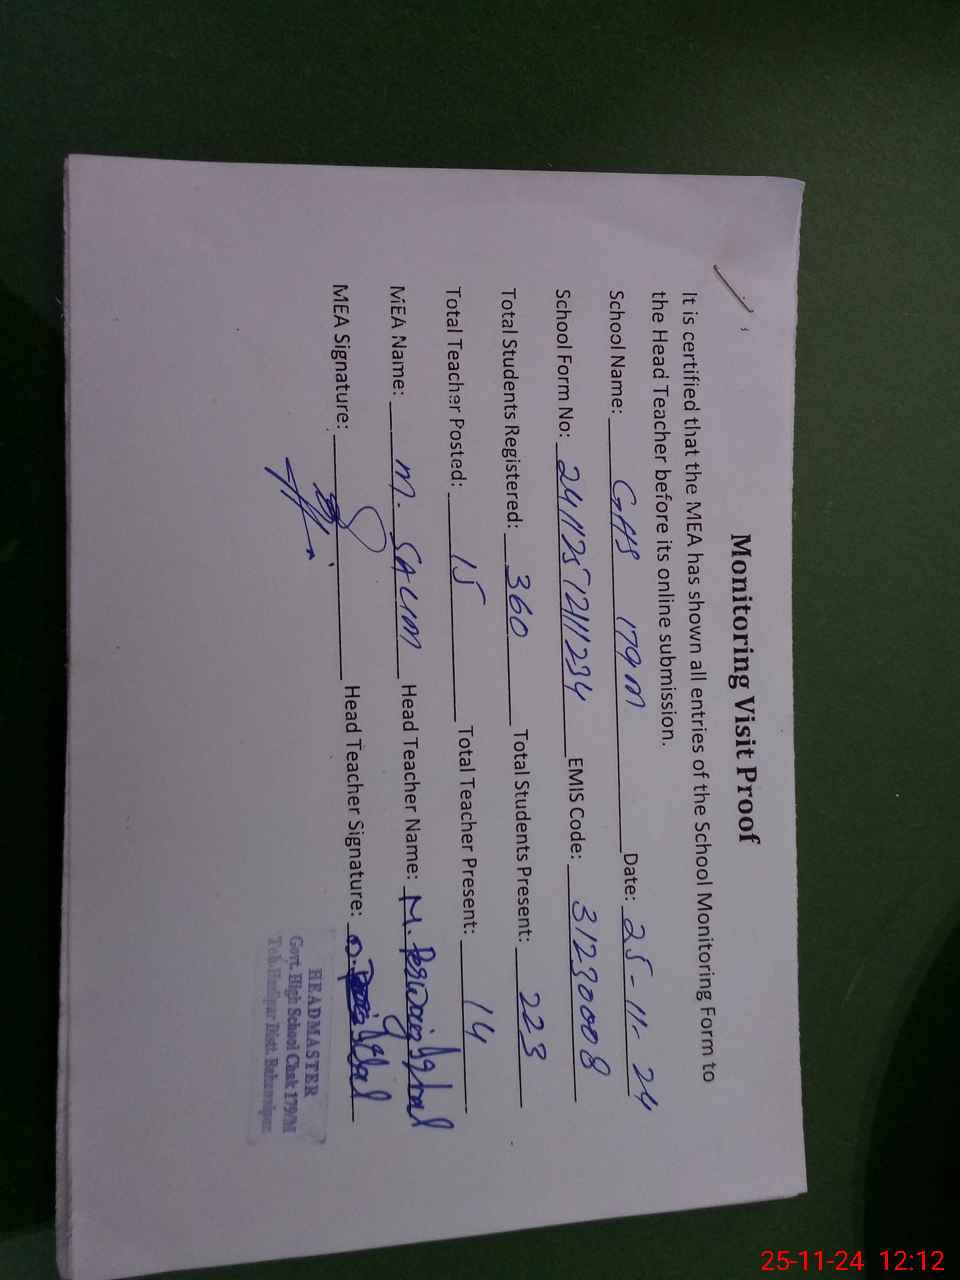 Monitoring Visit Proof
It is certified that the MEA has shown all entries of the School Monitoring Form to
the Head Teacher before its online submission.
School Name: GHS 179M Date: 25-11-24
School Form No: 24112512111234 EMIS Code: 31230008
Total Students Registered: 360 Total Students Present: 223
Total Teacher Posted: 15 Total Teacher Present: 14
MEA Name: M. SALIM Head Teacher Name: M. Perwaiz Iqbal
MEA Signature: Head Teacher Signature:
HEADMASTER
Govt. High School Chak 179/M
Teh. Hasilpur Distt. Bahawalpur
25-11-24 12:12